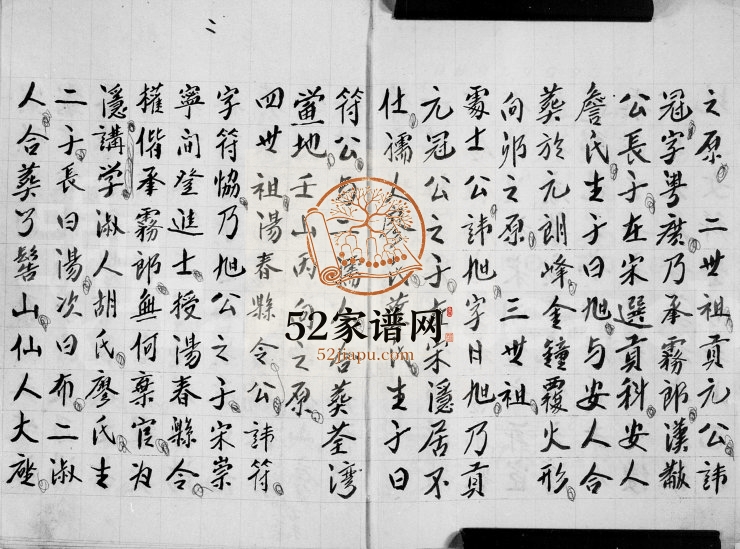 之原 二世祖貢元公諱
冠字粤廣乃承霧郎漢黻
公長子在宋選貢科安人
詹氏生子曰旭与安人合
葬於元朗峰金鐘覆火形
向邜之原 三世祖
處士公諱旭字日旭乃貢
元冠公之子 宋隱居不
仕孺 氏 氏生子曰
符公 二孺人合葬荃灣
黨地壬山丙向之原
四世祖湯春縣令公諱符
字符協乃旭公之子宋崇
寧间登進士授湯春縣令
權偕承霧郎無何棄官为
隱講学淑人胡氏廖氏生
二子長曰湯次曰布二淑
人合葬于髻山仙人大座
52家谱网
52jiapu.com